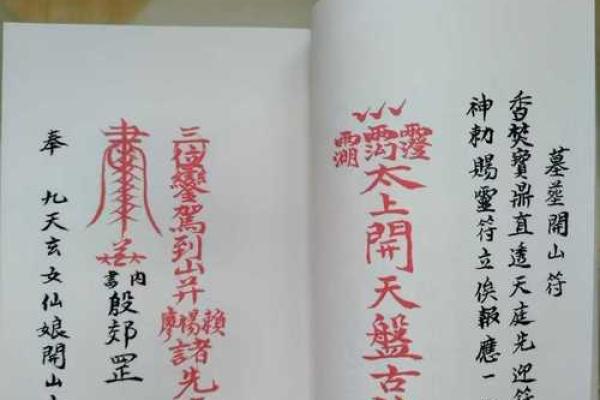 墓塋開山符
香焚寶鼎直透天庭先迎符
神勅賜靈符立俟報應一
太上開天盤古
三位鑾駕到山并
廖楊賴
諸先
內書
殷郊罡
奉 九天玄女仙娘開山